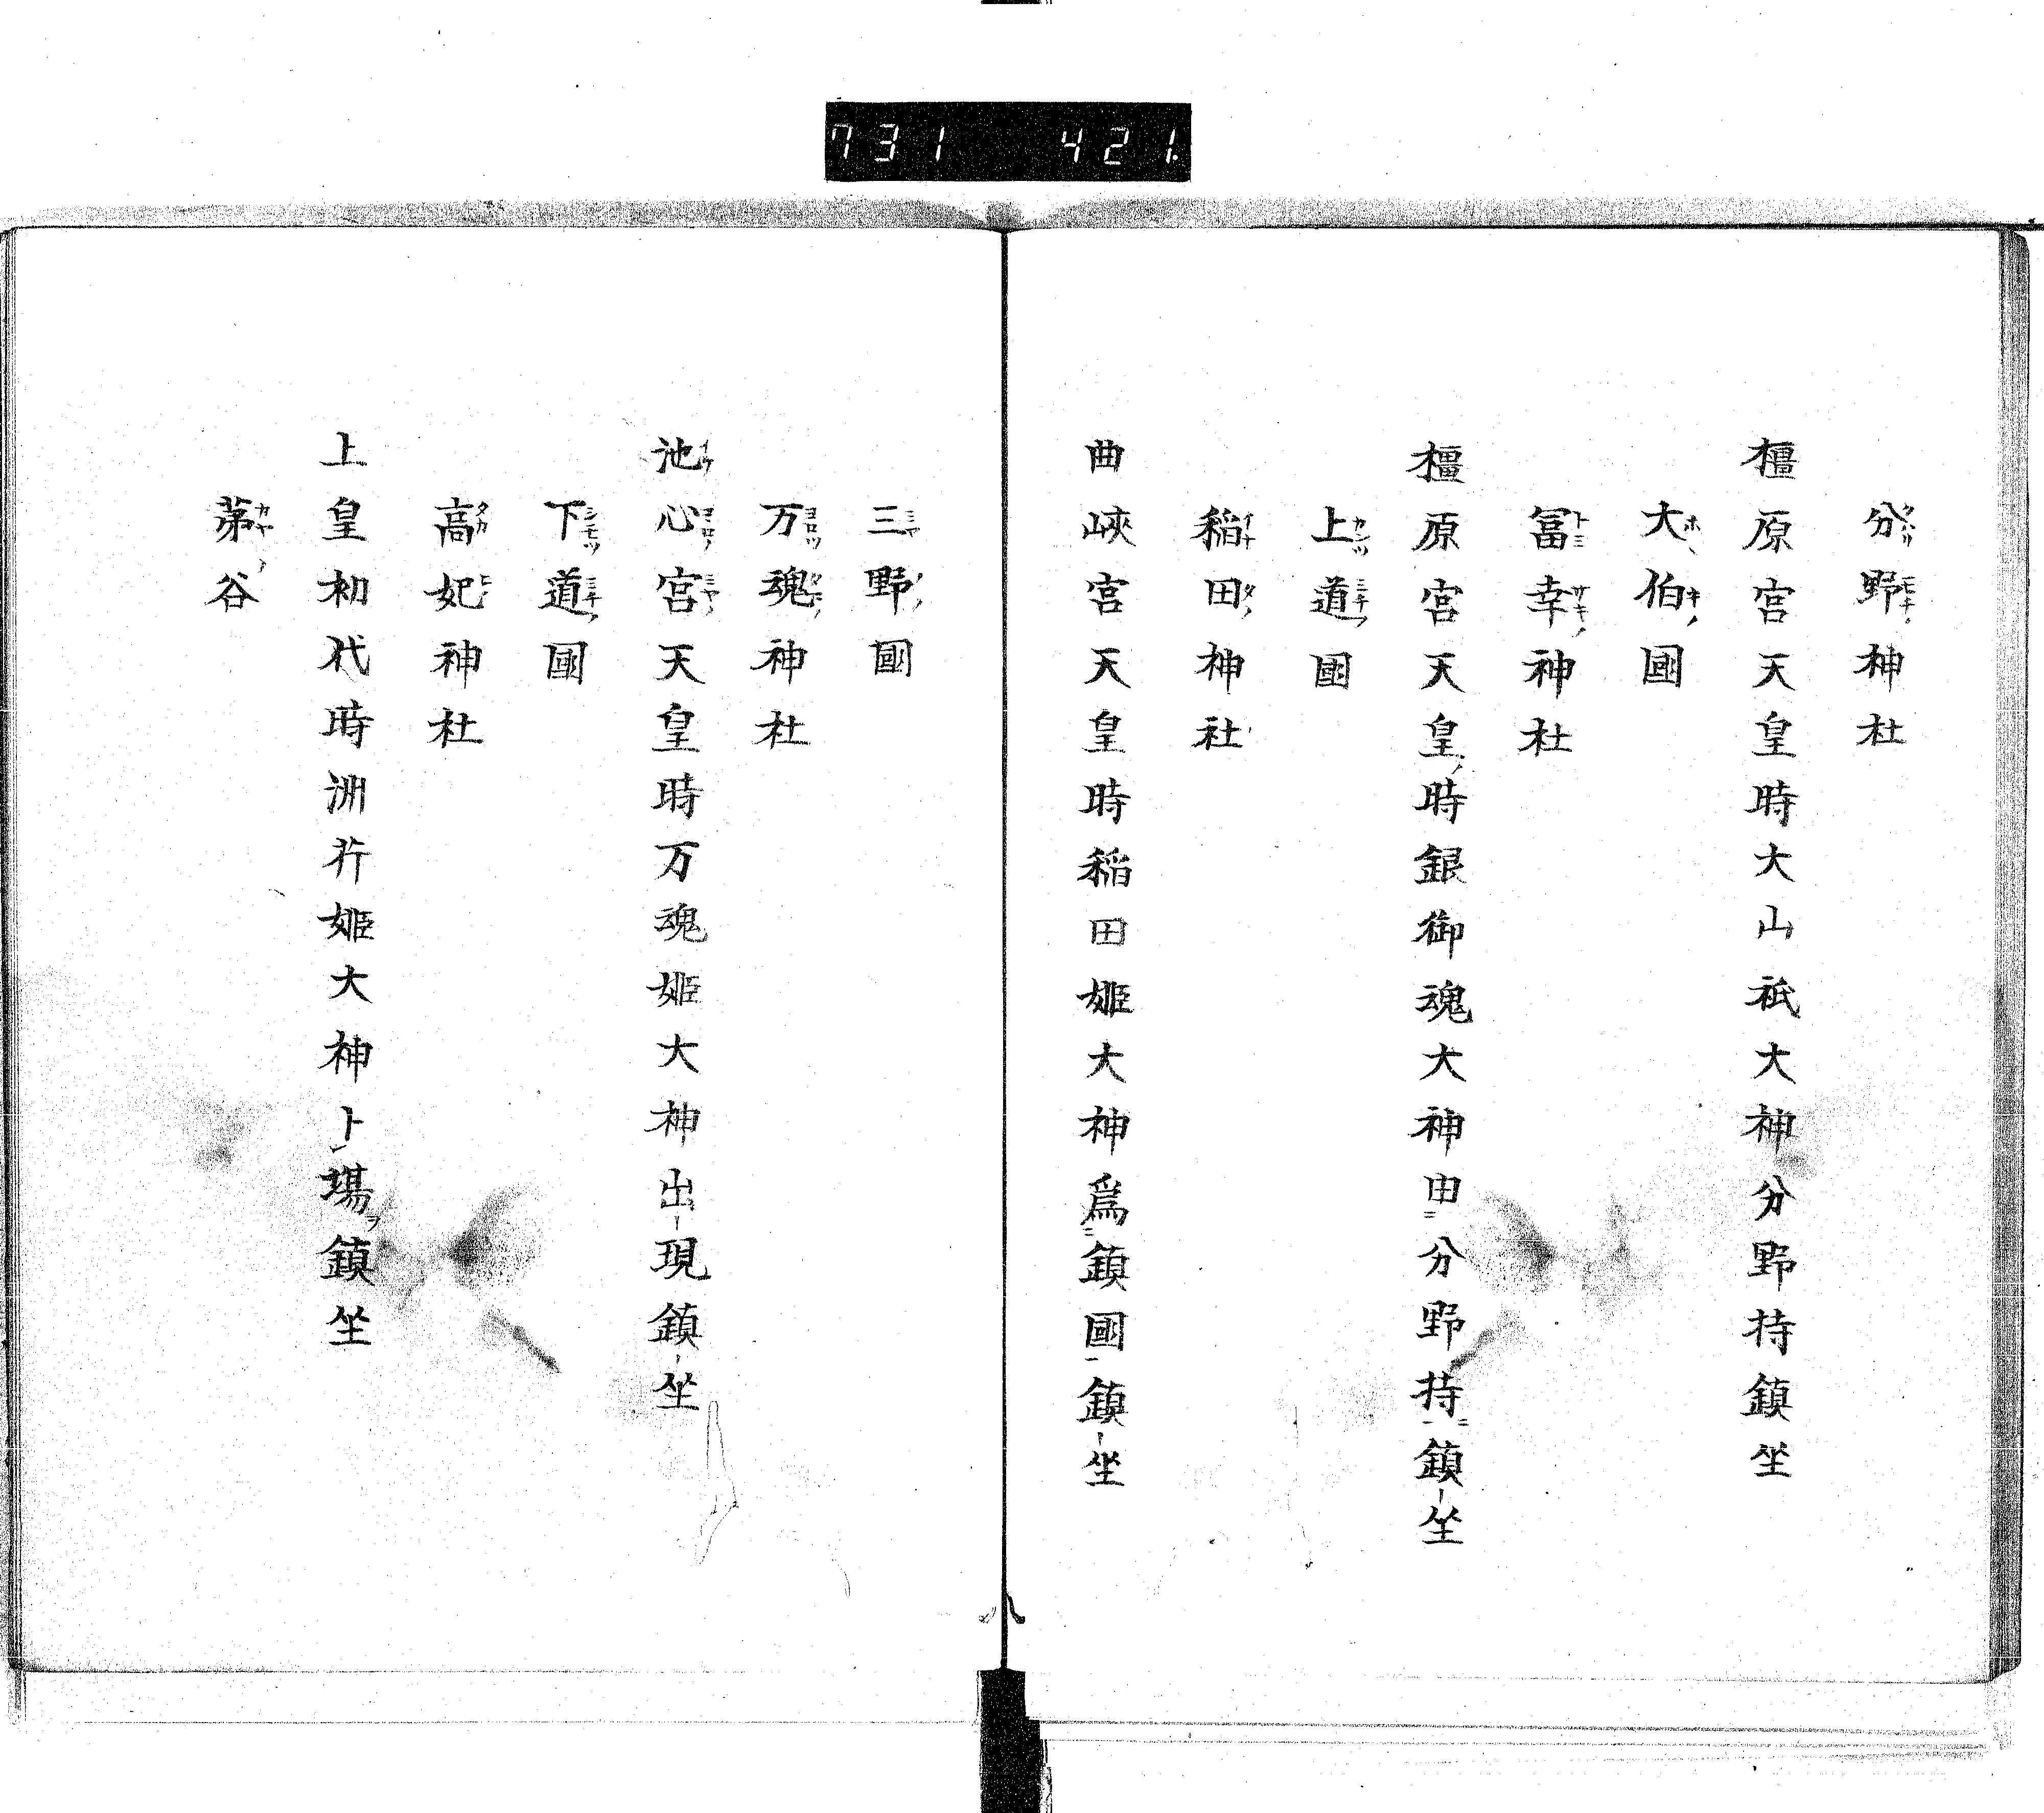 731 421.
分野神社
橿原宮天皇時大山祇大神分野持鎮坐
大伯國
冨幸神社
橿原宮天皇時銀御魂大神由分野持鎮坐
上道國
稲田神社
曲峽宮天皇時稲田姫大神爲鎮國鎮坐
三野國
万魂神社
池心宮天皇時万魂姫大神出現鎮坐
下道國
高妃神社
上皇初代時洲姫大神卜場鎮坐
茅谷
八